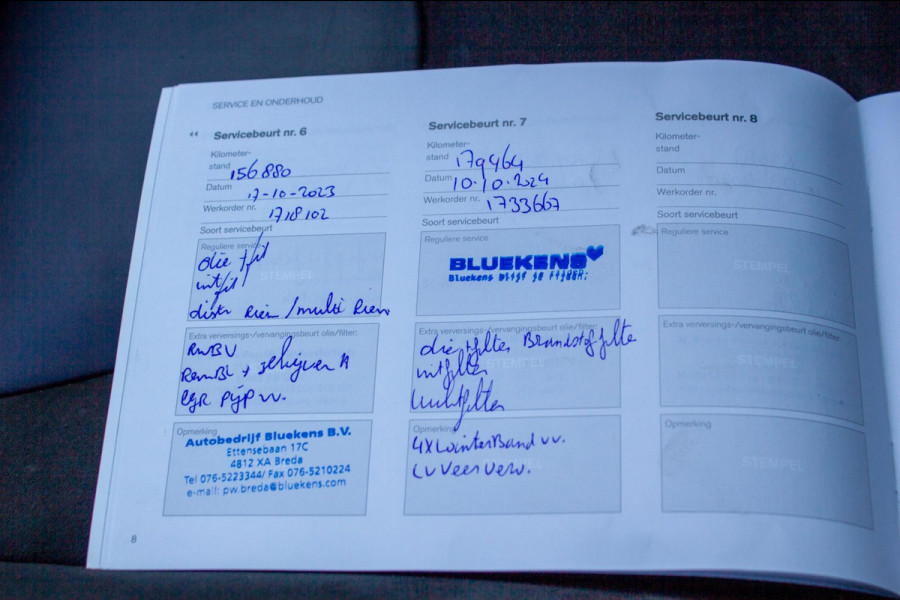 SERVICE EN ONDERHOUD
Servicebeurt nr. 6
Kilometer-
stand 156880
Datum 17-10-2023
Werkorder nr. 1718102
Soort servicebeurt
Reguliere service
olie fil
int fil
distr Riem / multi Riem
STEMPEL
Extra verversings-/vervangingsbeurt olie/filter:
RmBV
RemBl + schijven A
EGR pijp vv.
Opmerking
Autobedrijf Bluekens B.V.
Ettensebaan 17C
4812 XA Breda
Tel 076-5223344/ Fax 076-5210224
e-mail: pw.breda@bluekens.com
8
Servicebeurt nr. 7
Kilometer-
stand 179464
Datum 10.10.2024
Werkorder nr. 1733667
Soort servicebeurt
Reguliere service
BLUEKENS
Bluekens blijf je rijden.
Extra verversings-/vervangingsbeurt olie/filter:
olie filter Brandstoffilter
intfilter
luchtfilter
STEMPEL
Opmerking
4x winterBand vv.
LV Veer verv.
STEMPEL
Servicebeurt nr. 8
Kilometer-
stand
Datum
Werkorder nr.
Soort servicebeurt
Reguliere service
STEMPEL
Extra verversings-/vervangingsbeurt olie/filter:
STEMPEL
Opmerking
STEMPEL